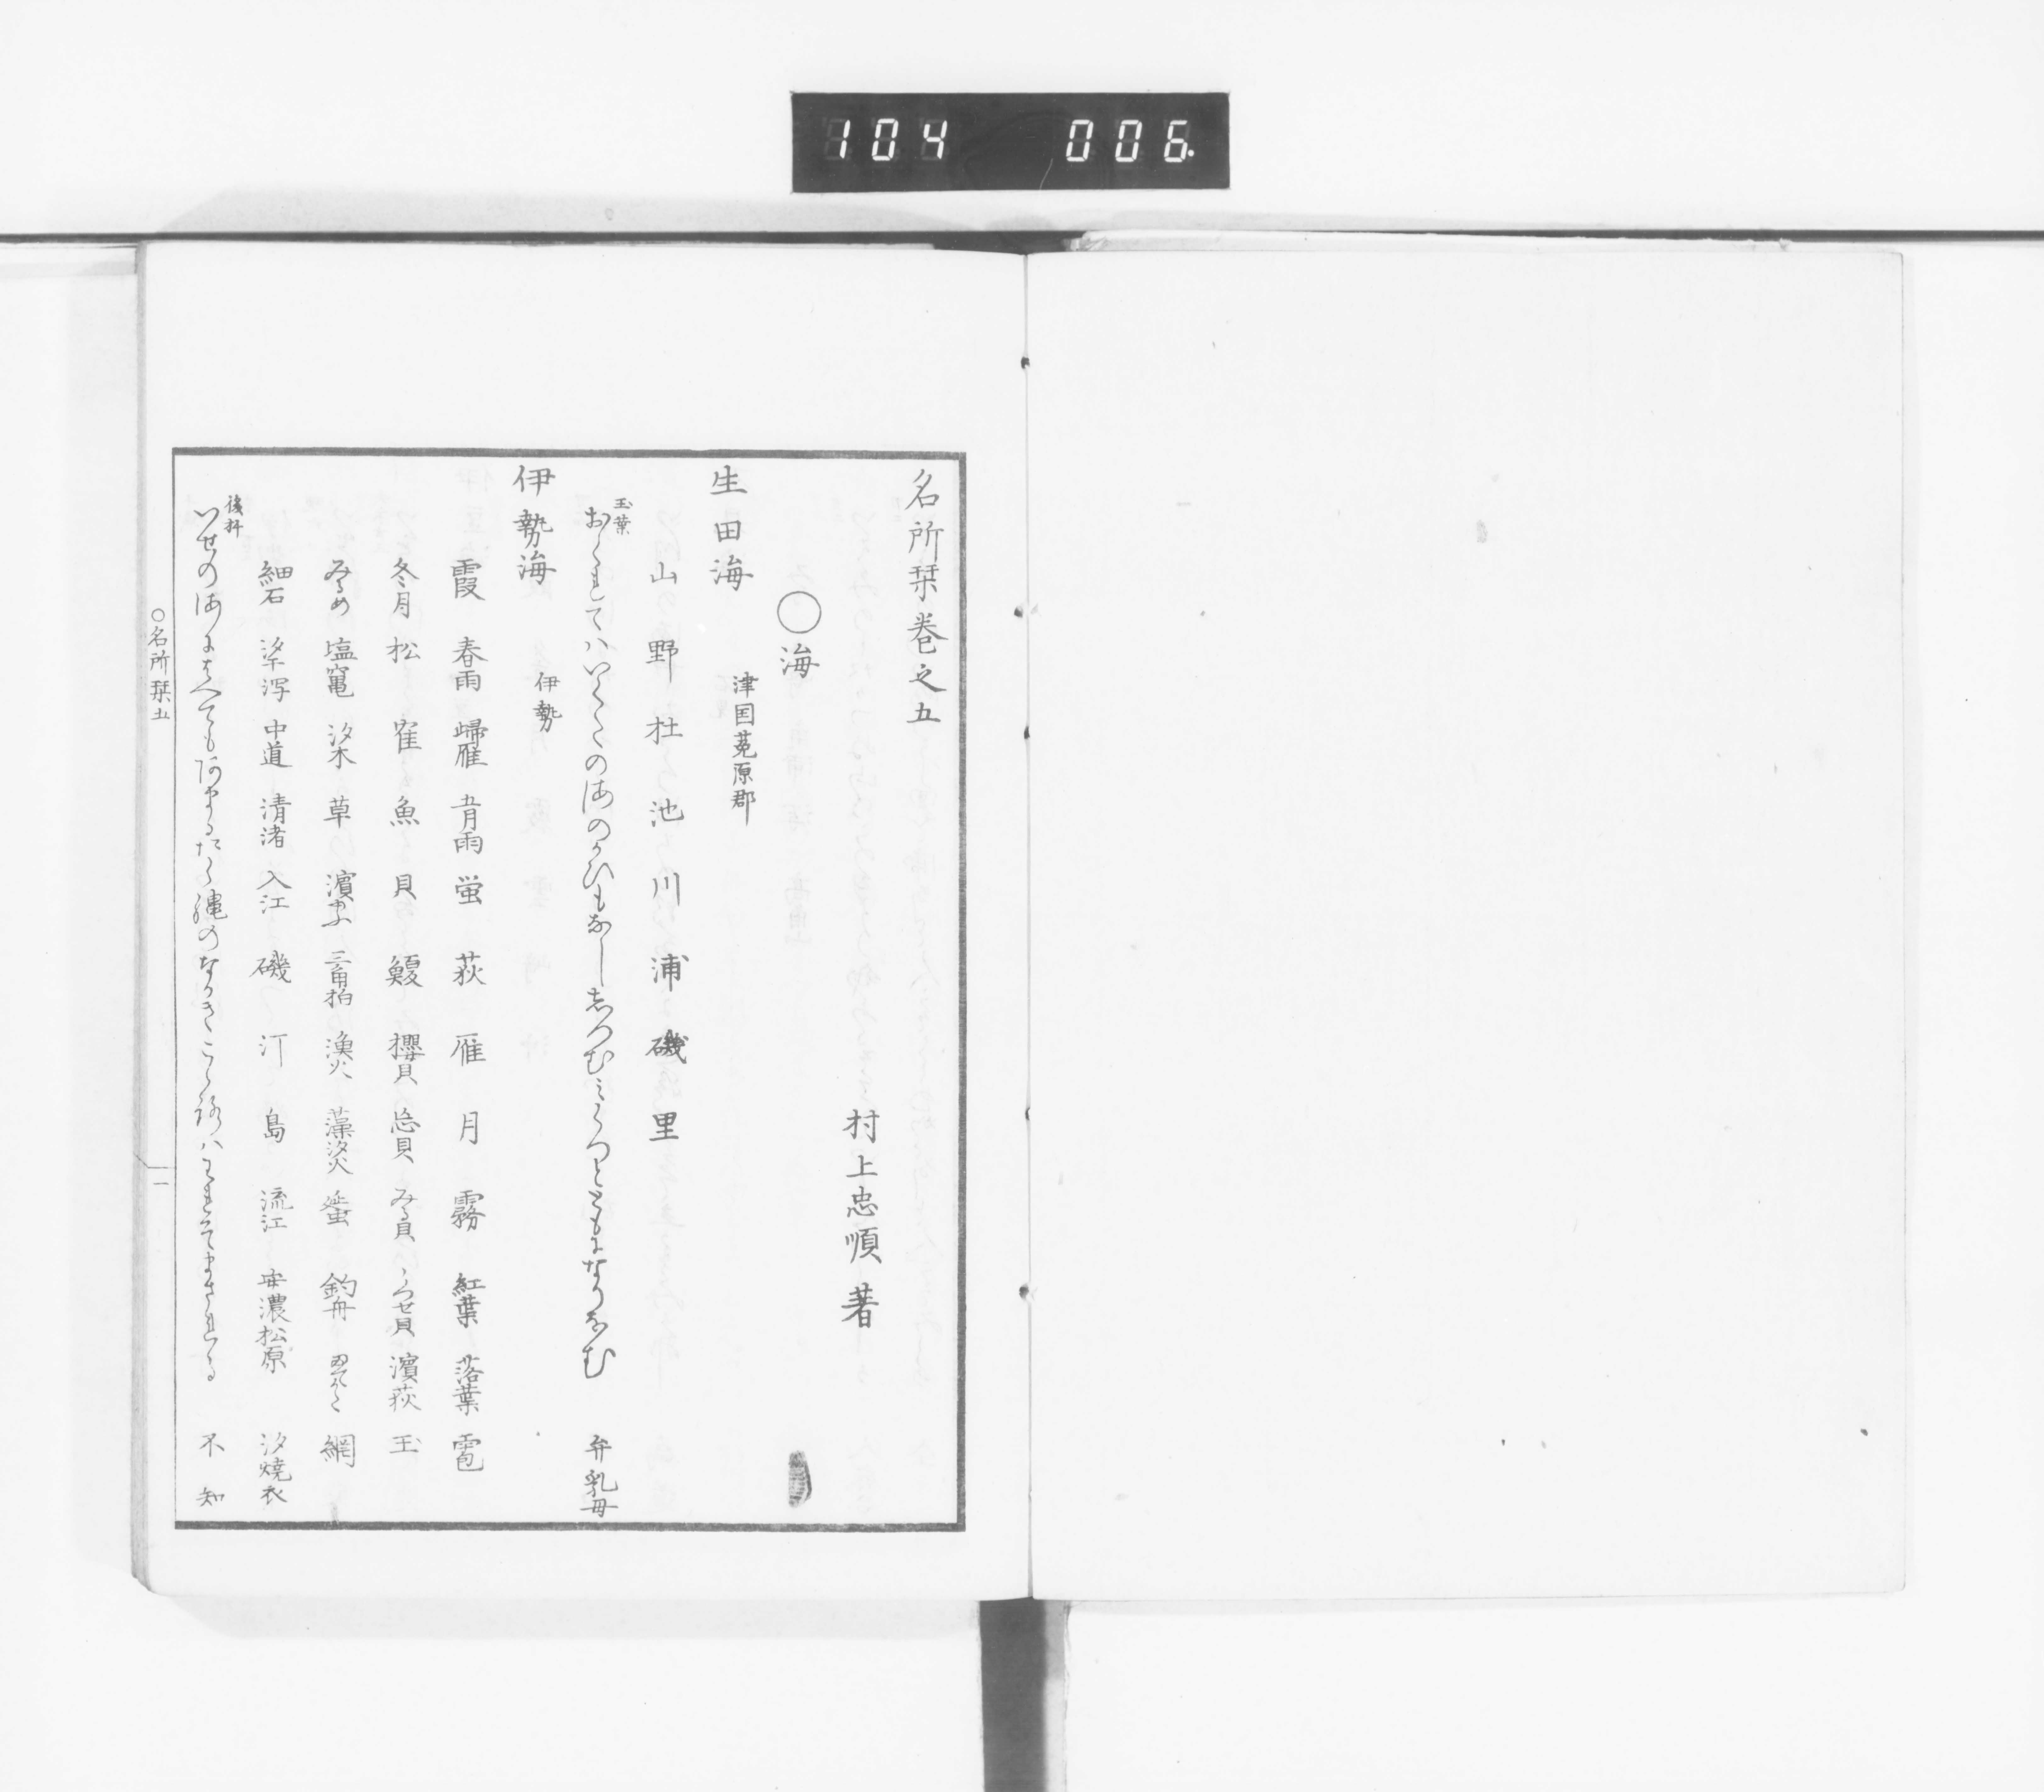 104 006
名所栞巻之五
村上忠順著
○海
生田海 津国菟原郡
山 野 杜 池 川 浦 磯 里
玉葉 おくれてハいくたの海のかひもなししつむみくつとともになりなむ 弁乳母
伊勢海 伊勢
霞 春雨 歸雁 五月雨 蛍 萩 雁 月 霧 紅葉 落葉 雹
冬月 松 窪 魚 貝 鰒 櫻貝 忘貝 みる貝 うつせ貝 濱荻 玉
みるめ 塩竃 汐木 草 濱 三角柏 漁火 藻汐火 蜑 釣舟 網
細石 汐泻 中道 清渚 入江 磯 汀 島 流江 安濃松原 汐焼衣
後拾 いせの海にはへてもあまるたく縄のなかきこゝろハわれそまされる 不知
○名所栞五 一